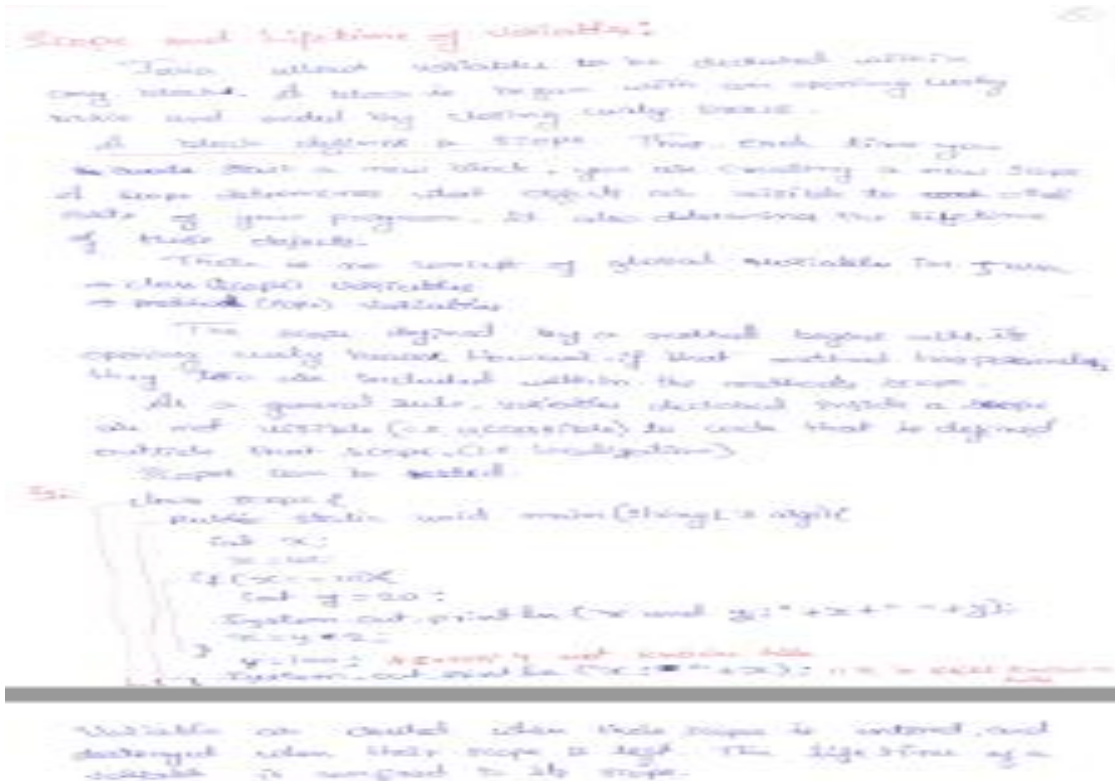 Scope and Lifetime of variables:
Java allows variables to be declared within
any block. A block is begun with an opening curly
brace and ended by closing curly brace.
A block defines a scope. Thus each time you
start a new block, you are creating a new scope
A scope determines what objects are visible to other
parts of your program. It also determines the lifetime
of those objects.
There is no concept of global variables in Java
→ class (scope) variables
→ method (scope) variables
The scope defined by a method begins with its
opening curly brace. However, if that method has parameters,
they too are included within the methods scope.
As a general rule, variables declared inside a scope
are not visible (i.e accessible) to code that is defined
outside that scope. (i.e localization)
Scopes can be nested
Eg: class scope {
public static void main(String[] args){
int x;
x = 10;
if (x == 10){
int y = 20;
System.out.println("x and y:" +x+" "+y);
x = y * 2;
}
y = 100; y not known here
System.out.println("x:" +x); // x is still known here
Variables are created when their scope is entered, and
destroyed when their scope is left. The life time of a
variable is confined to its scope.